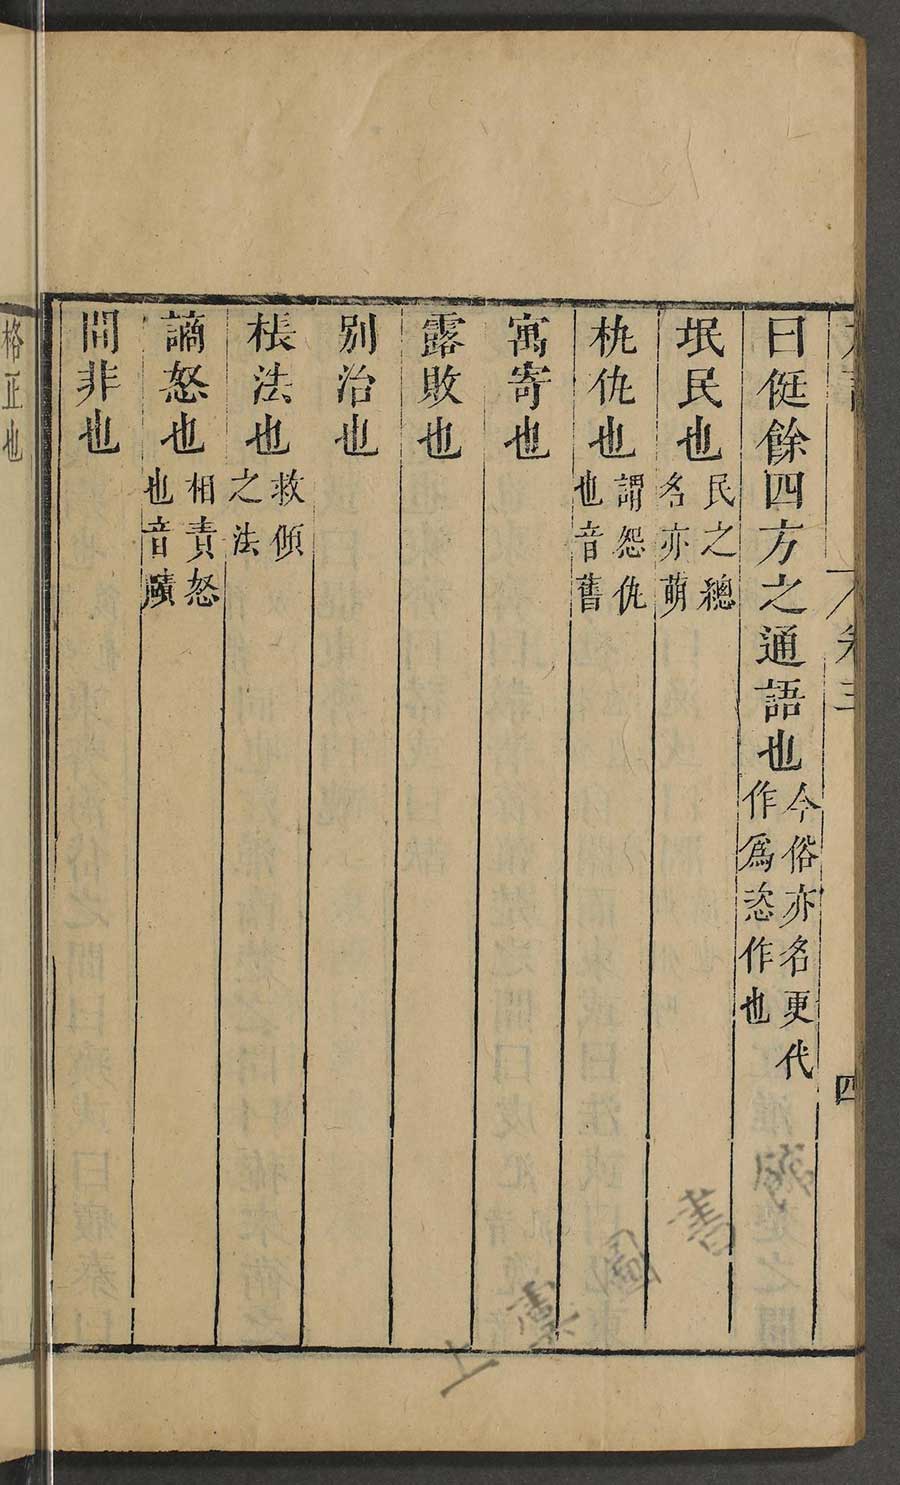 卷三
四
曰侹餘四方之通語也今俗亦名更代作爲恣作也
氓民也民之總名亦萌
杋仇也謂怨仇也音舊
寓寄也
露敗也
别治也
棖法也救傾之法
謫怒也相責怒也音賾
間非也
格正也
上虞圖書